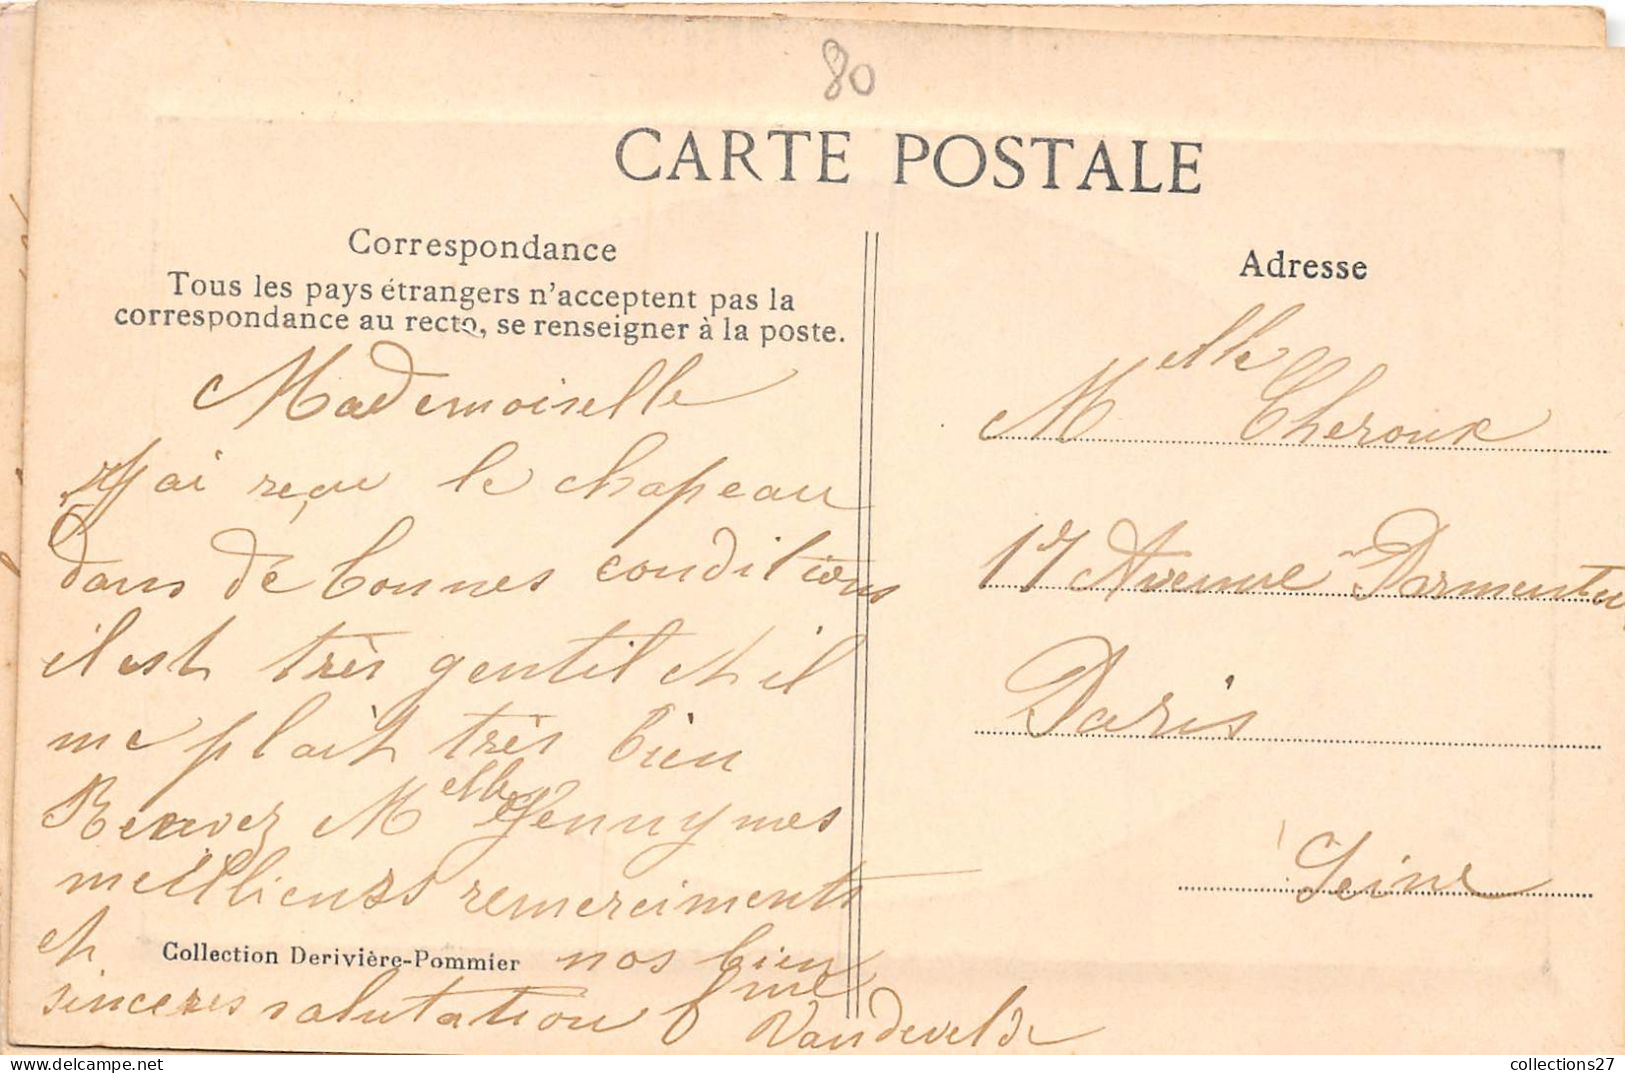 80
CARTE POSTALE
Correspondance
Tous les pays étrangers n'acceptent pas la
correspondance au recto, se renseigner à la poste.
Mademoiselle
J'ai reçu le chapeau
dans de bonnes conditions
il est très gentil et il
me plait très bien
Recevez Melle Jenny mes
meillieurs remerciments
et nos bien
sinceres salutation
Vandevelde
Collection Derivière-Pommier
Adresse
Melle Cheroux
17 Avenue Parmentier
Paris
Seine
collections27